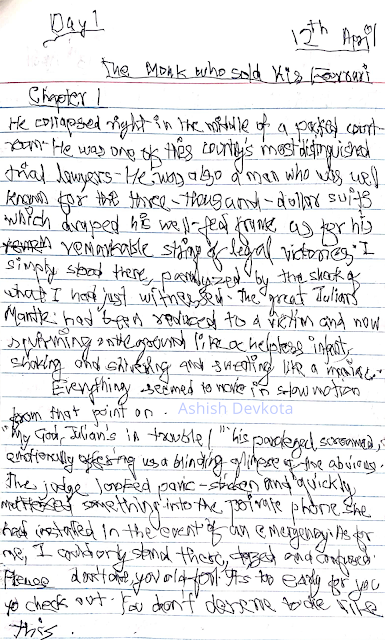 Day 1
12th April
The Monk who sold his Ferrari
Chapter 1
He collapsed right in the middle of a packed court-
room. He was one of this country's most distinguished
trial lawyers. He was also a man who was well
known for the three-thousand-dollar suits
which draped his well-fed frame as for his
remarkable string of legal victories. I
simply stood there, paralyzed by the shock of
what I had just witnessed. The great Julian
Mantle had been reduced to a victim and now
squirming on the ground like a helpless infant,
shaking and shivering and sweating like a maniac.
Everything seemed to move in slow motion
from that point on.
Ashish Devkota
"My God, Julian's in trouble!" his paralegal screamed,
emotionally offering us a blinding glimpse of the obvious.
The judge looked panic-stricken and quickly
muttered something into the private phone she
had installed in the event of an emergency. As for
me, I could only stand there, dazed and confused.
Please don't die, you old fool. It's too early for you
to check out. You don't deserve to die like
this.